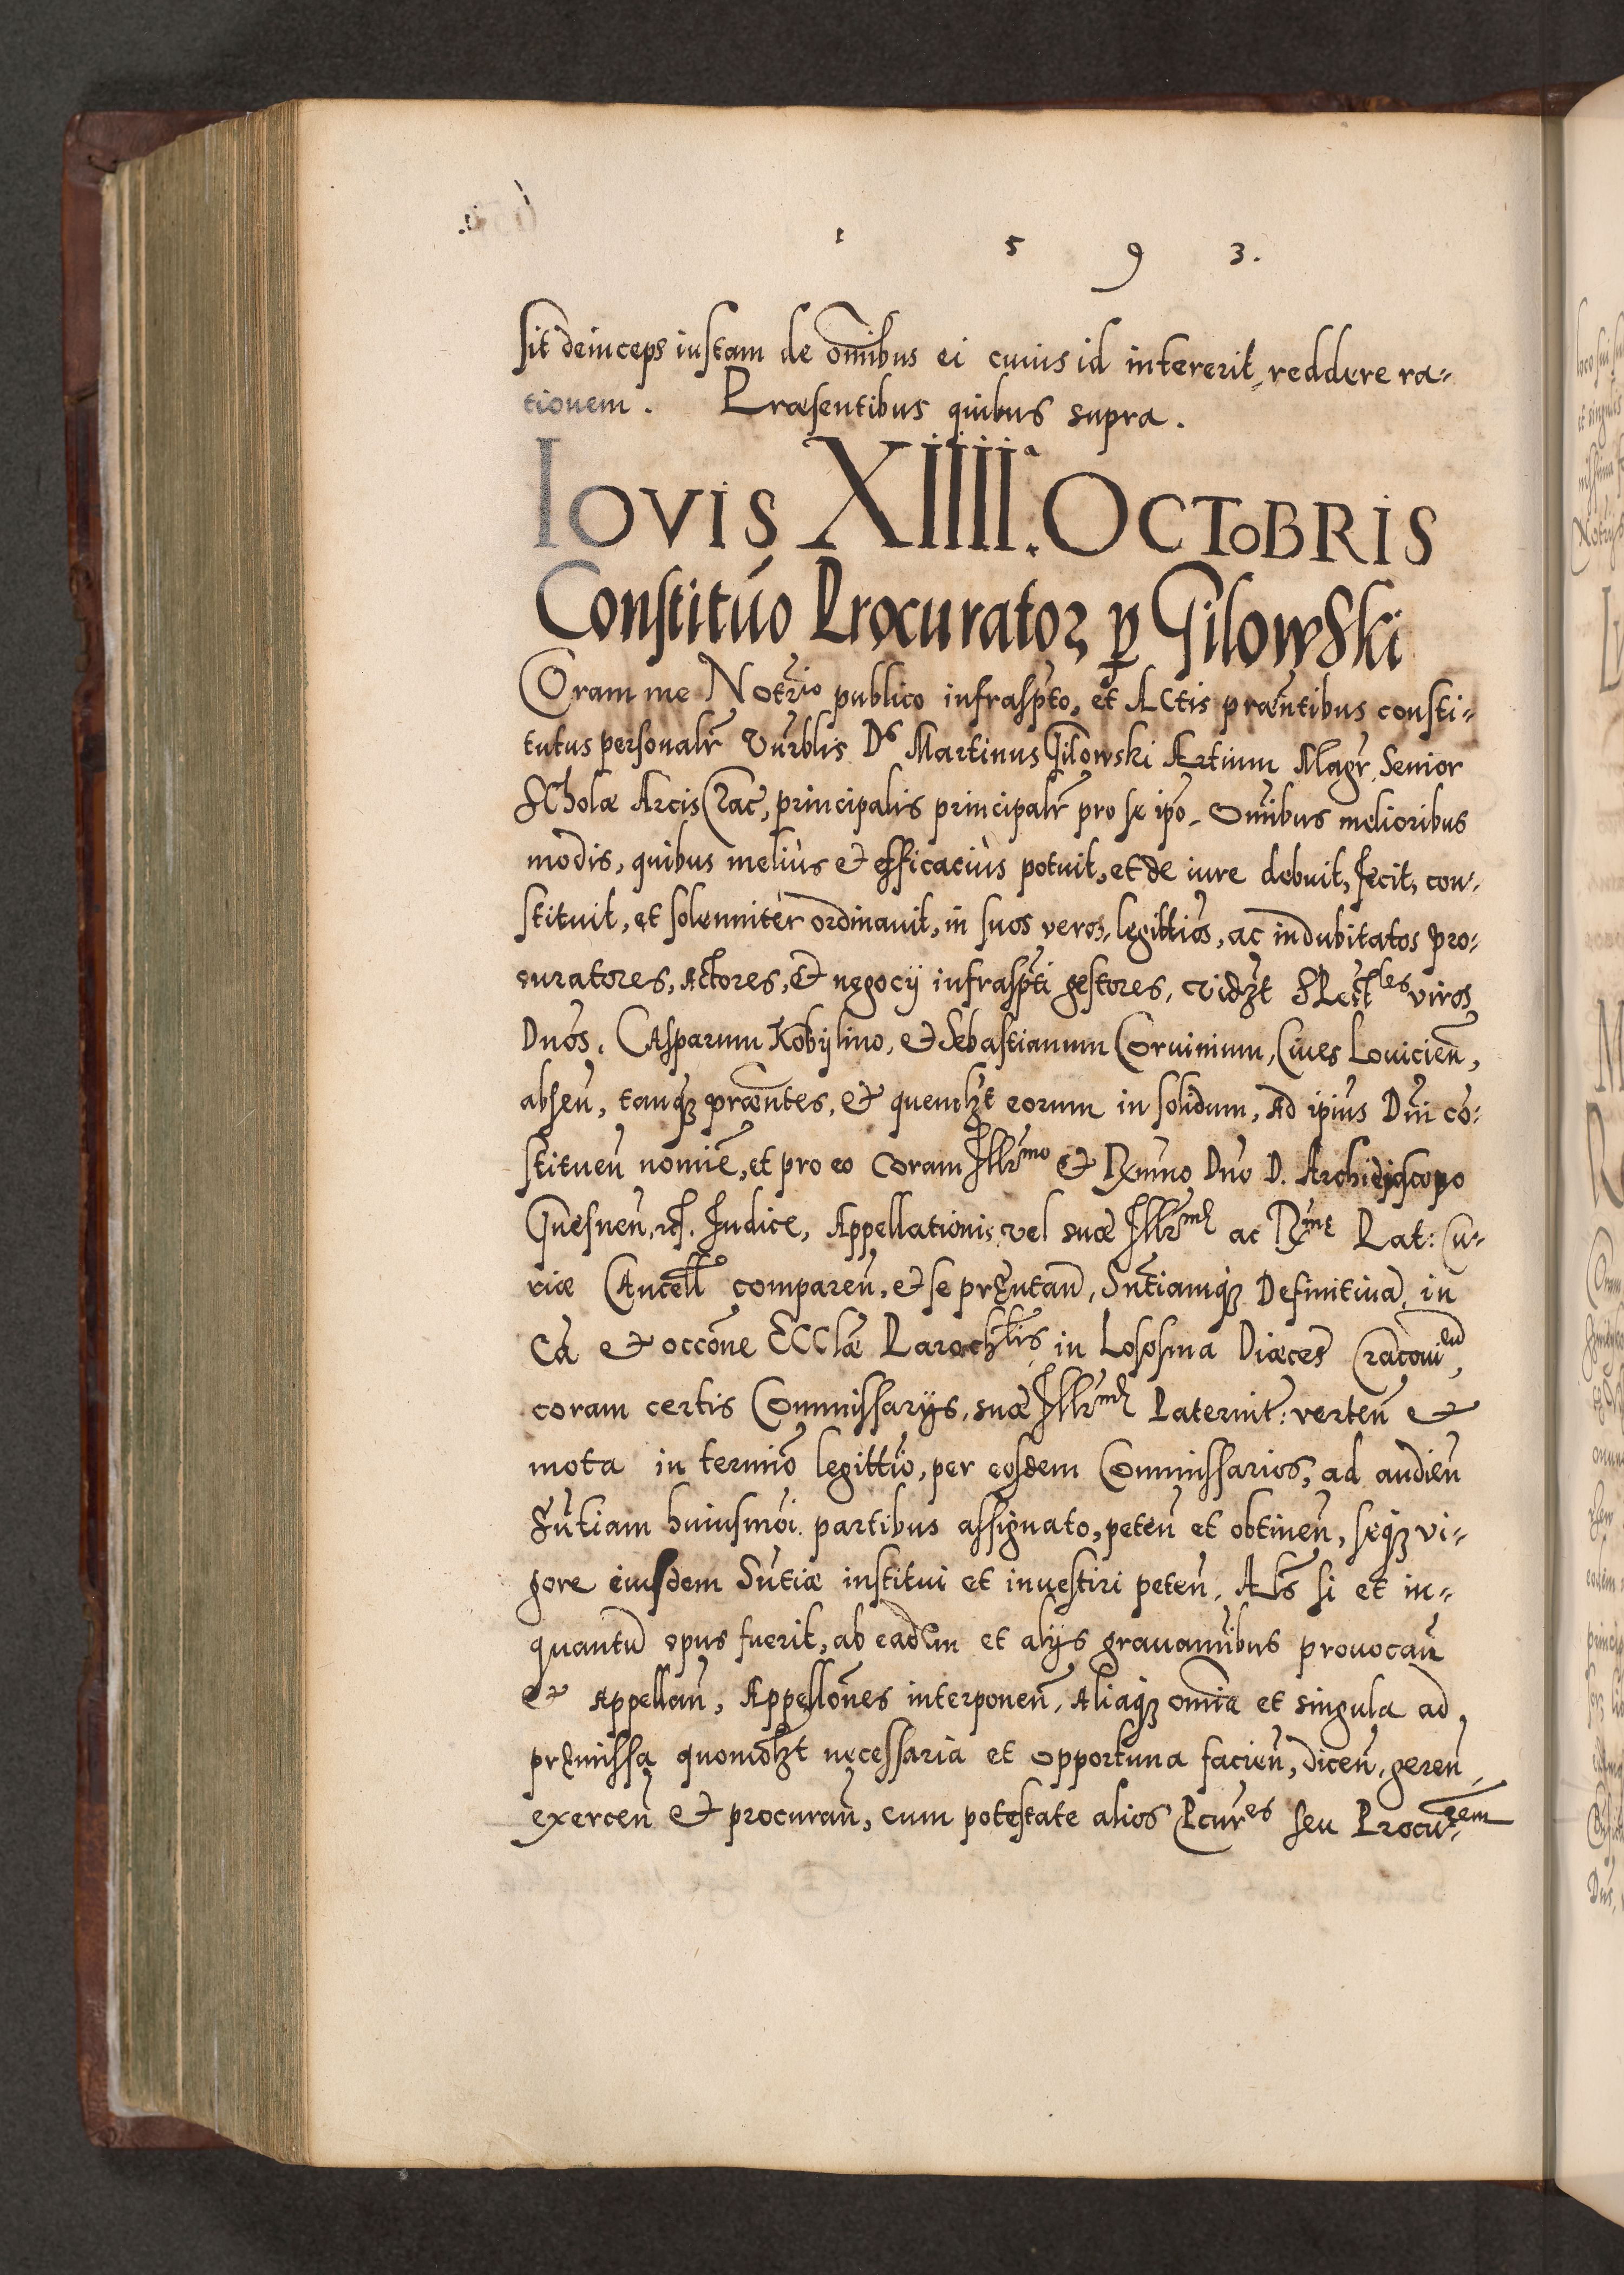 1 5 9 3.
sit deinceps iustam de om̄ibus ei cuius id intererit, reddere ra-
tionem. Præsentibus quibus supra.
IOVIS XIIII.ª OCTOBRIS
Constitúo Procurator, ꝑ Gilowski
Coram me Notr̄io publico infrasp̄to, et Actis præn̄tibus consti-
tutus personalr̄ Vn̄rblis Ds Martinus Gilowski Artium Magr̄ Senior
Scholæ Arcis Crac̄, principalis principalr̄ pro se ip̄o, Om̄ibus melioribus
modis, quibus meliùs et efficaciùs potuit, et de iure debuit, fecit, con-
stituit, et solenniter ordinauit, in suos veros, legitt̄ios, ac indubitatos pro-
curatores, Actores, et negocij infrasp̄ti gestores, vidꝫt viros
Dn̄os, Casparum Kobijlino, et Sebastianum Coruinium, Ciues Louicien̄,
absen̄, tanqꝫ præn̄tes, et quemlꝫt eorum in solidum, Ad ip̄ius Dn̄i cō-
stituen̄ nom̄ie, et pro eo Coram Illr̄mo et Rx̄mno Dn̄o D. Archiepiscopo
Gnesnen̄, Iudice, Appellationis, vel suæ Illr̄mæ ac Rmæ Pat: Cu-
riæ Cancell̄ comparen̄, et se pręn̄tan̄, Sn̄tiamqꝫ Definitiuā, in
Cā et occōne Ecclæ Parochlis in Lososina Diæces̄ Cracouien̄,
coram certis Commissarijs, suæ Illr̄mæ Paternit: verten̄ et
mota in term̄io legitt̄io, per eosdem Commissarios, ad audien̄
Sn̄tiam huiusmōi partibus assignato, peten̄ et obtinen̄, seqꝫ vi-
gore eiusdem Sn̄tiæ institui et inuestiri peten̄, Al̄s si et in-
quantū opus fuerit, ab eadem et alijs grauam̄ibus prouocan̄
et Appellan̄, Appellōnes interponen̄, Aliaqꝫ om̄ia et singula ad
pręmissa quomolꝫt necessaria et opportuna facien̄, dicen̄, geren̄,
exercen̄ et procuran̄, cum potestate alios Pcurr̄es seu Procur̄em